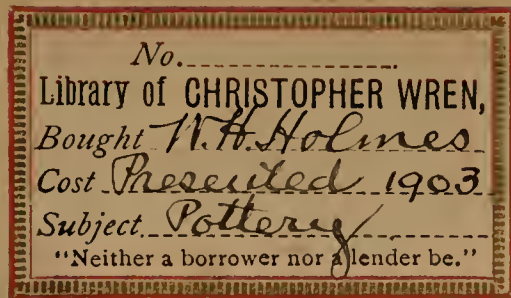 No.
Library of CHRISTOPHER WREN,
Bought W.H.Holmes
Cost Presented 1903
Subject Pottery
"Neither a borrower nor a lender be."